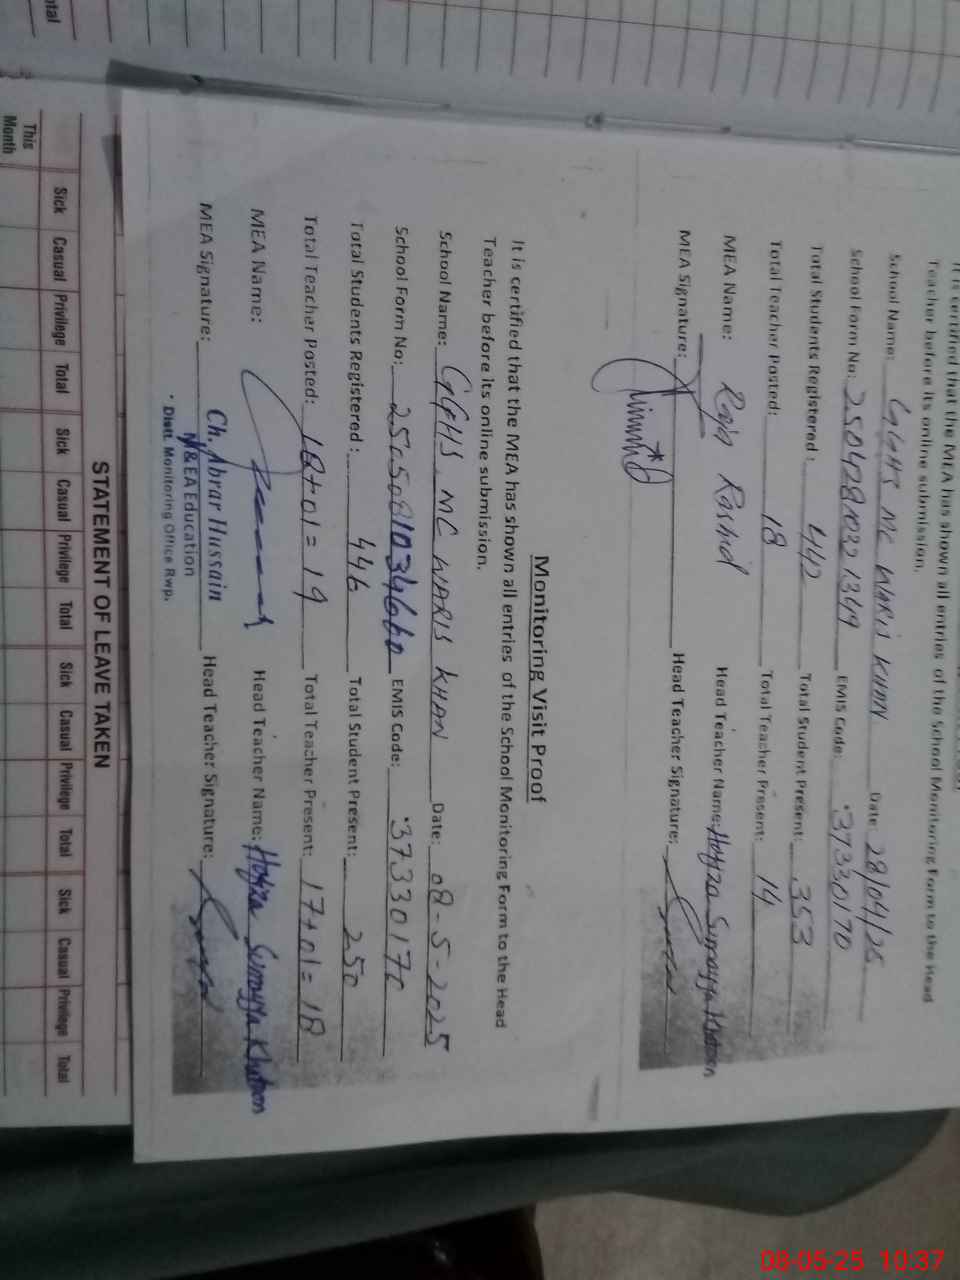 It is certified that the MEA has shown all entries of the School Monitoring Form to the Head
Teacher before its online submission.
School Name: GGHS MC WARIS KHAN Date: 28/04/25
School Form No: EMIS Code: 37330170
Total Students Registered : 442 Total Student Present: 353
Total Teacher Posted: 18 Total Teacher Present: 14
MEA Name: Raja Rashid Head Teacher Name: Sumayya Khatoon
MEA Signature: Head Teacher Signature:
Monitoring Visit Proof
It is certified that the MEA has shown all entries of the School Monitoring Form to the Head
Teacher before its online submission.
School Name: GGHS MC WARIS KHAN Date: 08-5-2025
School Form No: EMIS Code: 37330170
Total Students Registered : 446 Total Student Present: 250
Total Teacher Posted: 18+01=19 Total Teacher Present: 17+01=18
MEA Name: Head Teacher Name: Sumayya Khatoon
MEA Signature: Head Teacher Signature:
Ch. Abrar Hussain
M&EA Education
Distt. Monitoring Office Rwp.
STATEMENT OF LEAVE TAKEN
Sick Casual Privilege Total Sick Casual Privilege Total Sick Casual Privilege Total Sick Casual Privilege Total
This Month
08-05-25 10:37